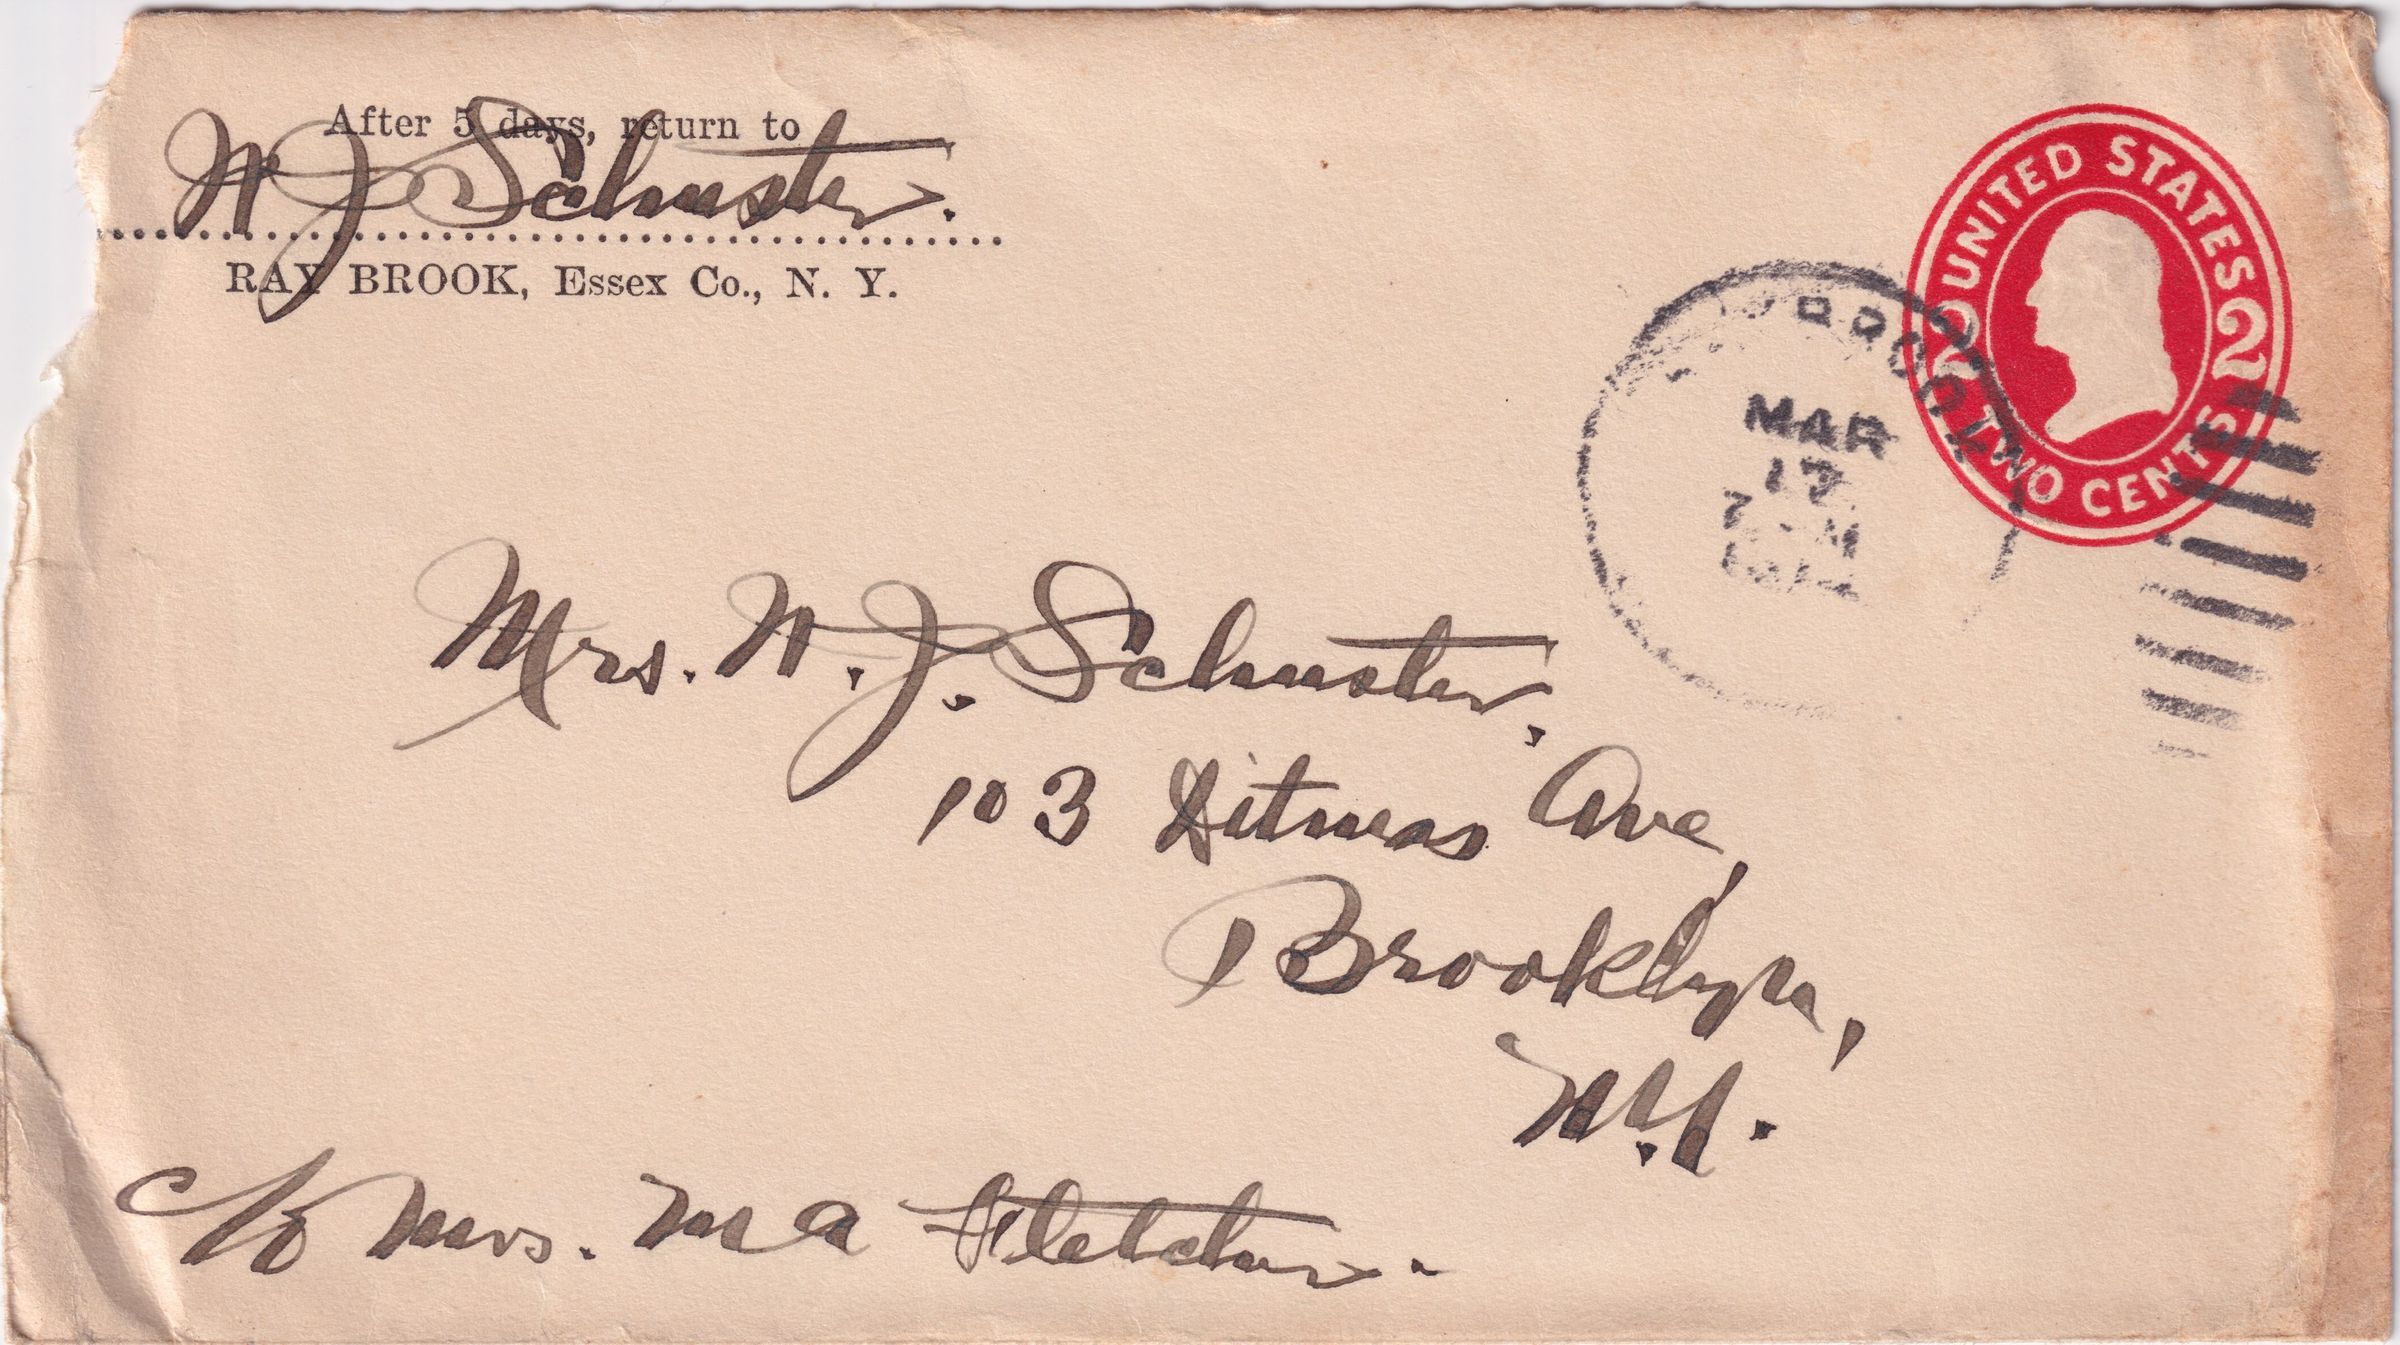 After 5 days, return to
W J Schuster.
RAY BROOK, Essex Co., N. Y.
UNITED STATES
2 2
TWO CENTS
MAR
17
Mrs. W. J. Schuster,
103 Ditmas Ave,
Brooklyn,
N.Y.
c/o Mrs. M A Fletcher.